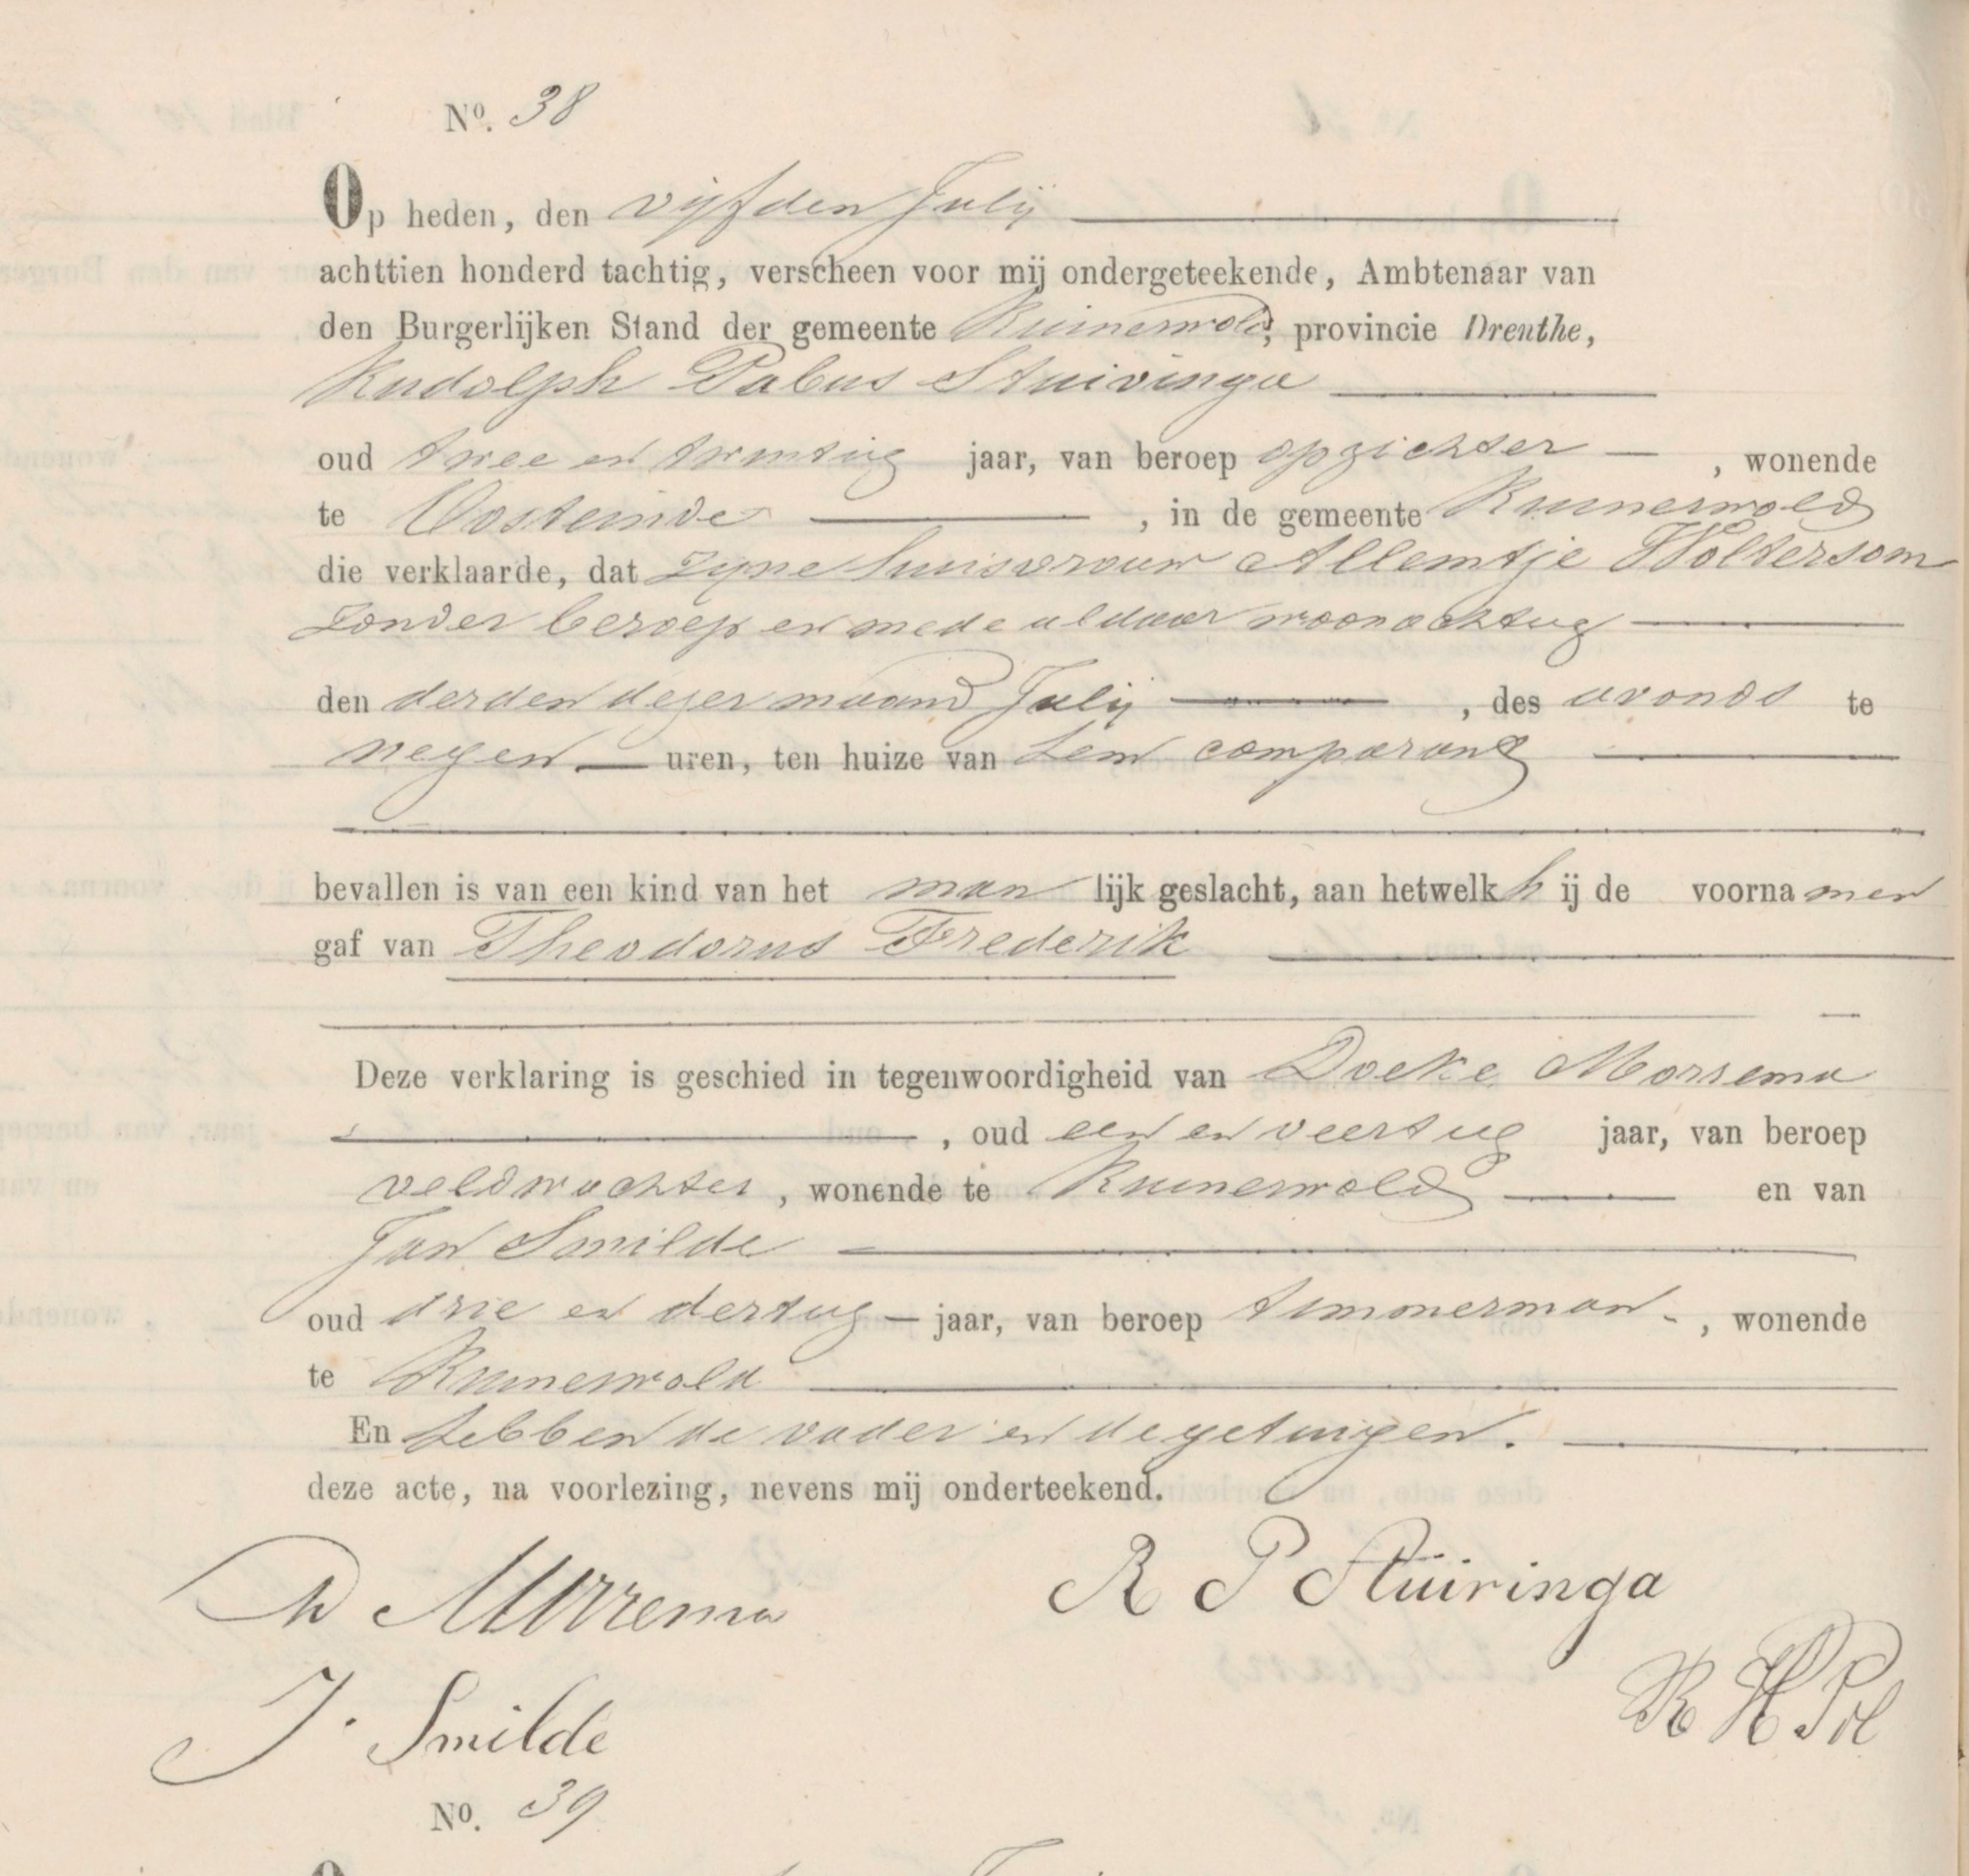 No. 38
Op heden, den vijfden Julij
achttien honderd tachtig, verscheen voor mij ondergeteekende, Ambtenaar van
den Burgerlijken Stand der gemeente Ruinerwold, provincie Drenthe,
Rudolph Pabus Stuivinga
oud twee en twintig jaar, van beroep opzichter, wonende
te Oosteinde, in de gemeente Ruinerwold
die verklaarde, dat zijne huisvrouw Allemtje Woltersom
zonder beroep en mede aldaar woonachtig
den derden dezer maand Julij, des avonds te
negen uren, ten huize van hem comparant
bevallen is van een kind van het manlijk geslacht, aan hetwelk hij de voornamen
gaf van Theodorus Frederik
Deze verklaring is geschied in tegenwoordigheid van Doeke Morrema
, oud een en veertig jaar, van beroep
veldwachter, wonende te Ruinerwold en van
Jan Smilde
oud drie en dertig jaar, van beroep timmerman, wonende
te Ruinerwold
En hebben de vader en de getuigen.
deze acte, na voorlezing, nevens mij onderteekend.
D Morrema
R P Stuivinga
J. Smilde
R H Pol
No. 39